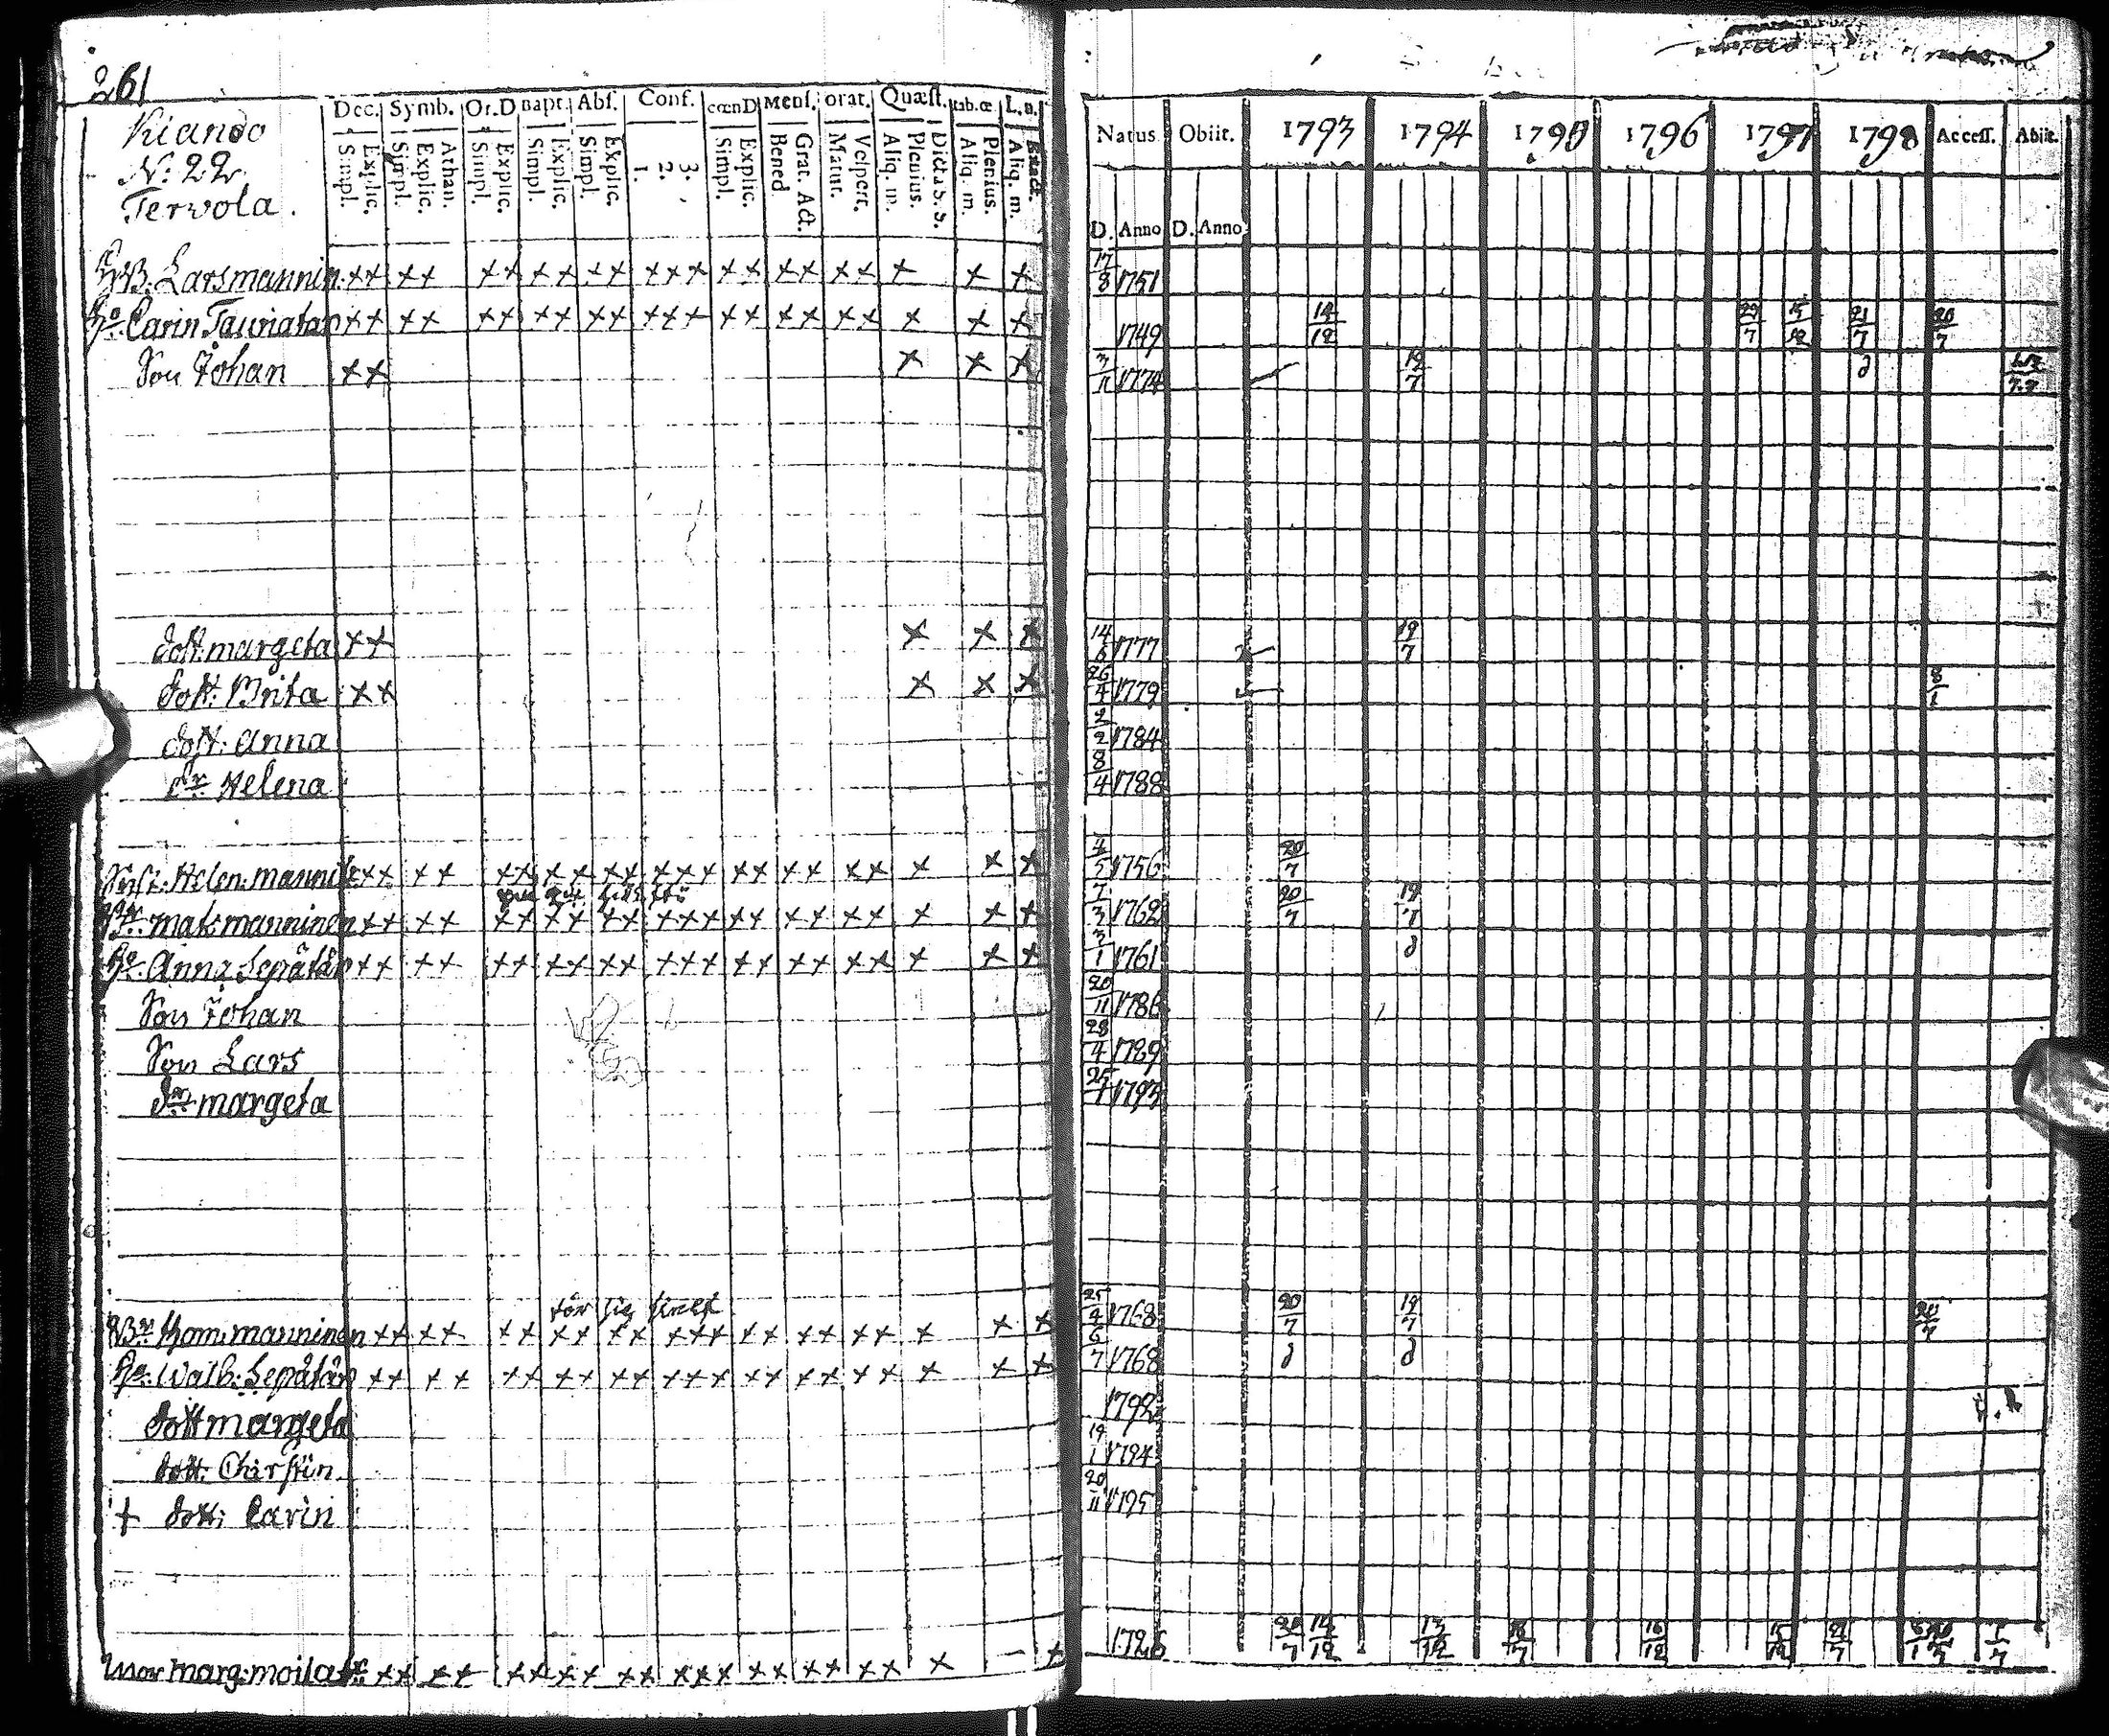 261
Dec. Symb. Or.D bapt. Abs. Conf. cœnD Mens. orat. Quæst. tab.œ L.n.
Kiando
N: 22
Tervola.
Simpl. Explic. Simpl. Explic. Athan. Simpl. Explic. Simpl. Explic. Simpl. Explic. 1. 2. 3. Simpl. Explic. Bened Grat. Act. Matut. Vespert. Aliq. m. Plenius. Dicta S. S. Aliq. m. Plenius. Aliq. m. Exact.
Natus Obiit. 1793 1794 1795 1796 1797 1798 Access. Abiit.
D. Anno D. Anno
Lars mannin ×× ×× ×× ×× ×× ××× ×× ×× ×× × × × 17/8 1751
Carin Tauriatar ×× ×× ×× ×× ×× ××× ×× ×× ×× × × × 1749 14/12 23/7 21/7 20/7
Son Johan ×× × × × 3/11 1774 19/7
dott. margeta ×× × × × 14/6 1777 19/7
dott. Brita ×× × × × 26/4 1779
dott. Anna 2/2 1784
dr. Helena 8/4 1788
Helen. mannin ×× ×× ×× ×× ×× ××× ×× ×× ×× × × × 4/5 1756 20/7
mat. manninen ×× ×× ×× ×× ×× ××× ×× ×× ×× × × × 1762 20/7 19/7
Anna Sepätär ×× ×× ×× ×× ×× ××× ×× ×× ×× × × × 3/1 1761
Son Johan 20/11 1786
Son Lars 28/4 1789
dr margeta 25/1 1793
för sig sielf
Thom. manninen ×× ×× ×× ×× ×× ××× ×× ×× ×× × × × 25/4 1768 20/7 19/7
Walb. Sepätär ×× ×× ×× ×× ×× ××× ×× ×× ×× × × × 6/7 1768
dott margeta 1792
dott. Chirstin 19/1 1794
+ dott. Carin 20/11 1795
mor marg. moila ×× ×× ×× ×× ×× ××× ×× ×× ×× × – × 1726 20/7 14/12 13/12 16/7 16/12 15/12 21/7